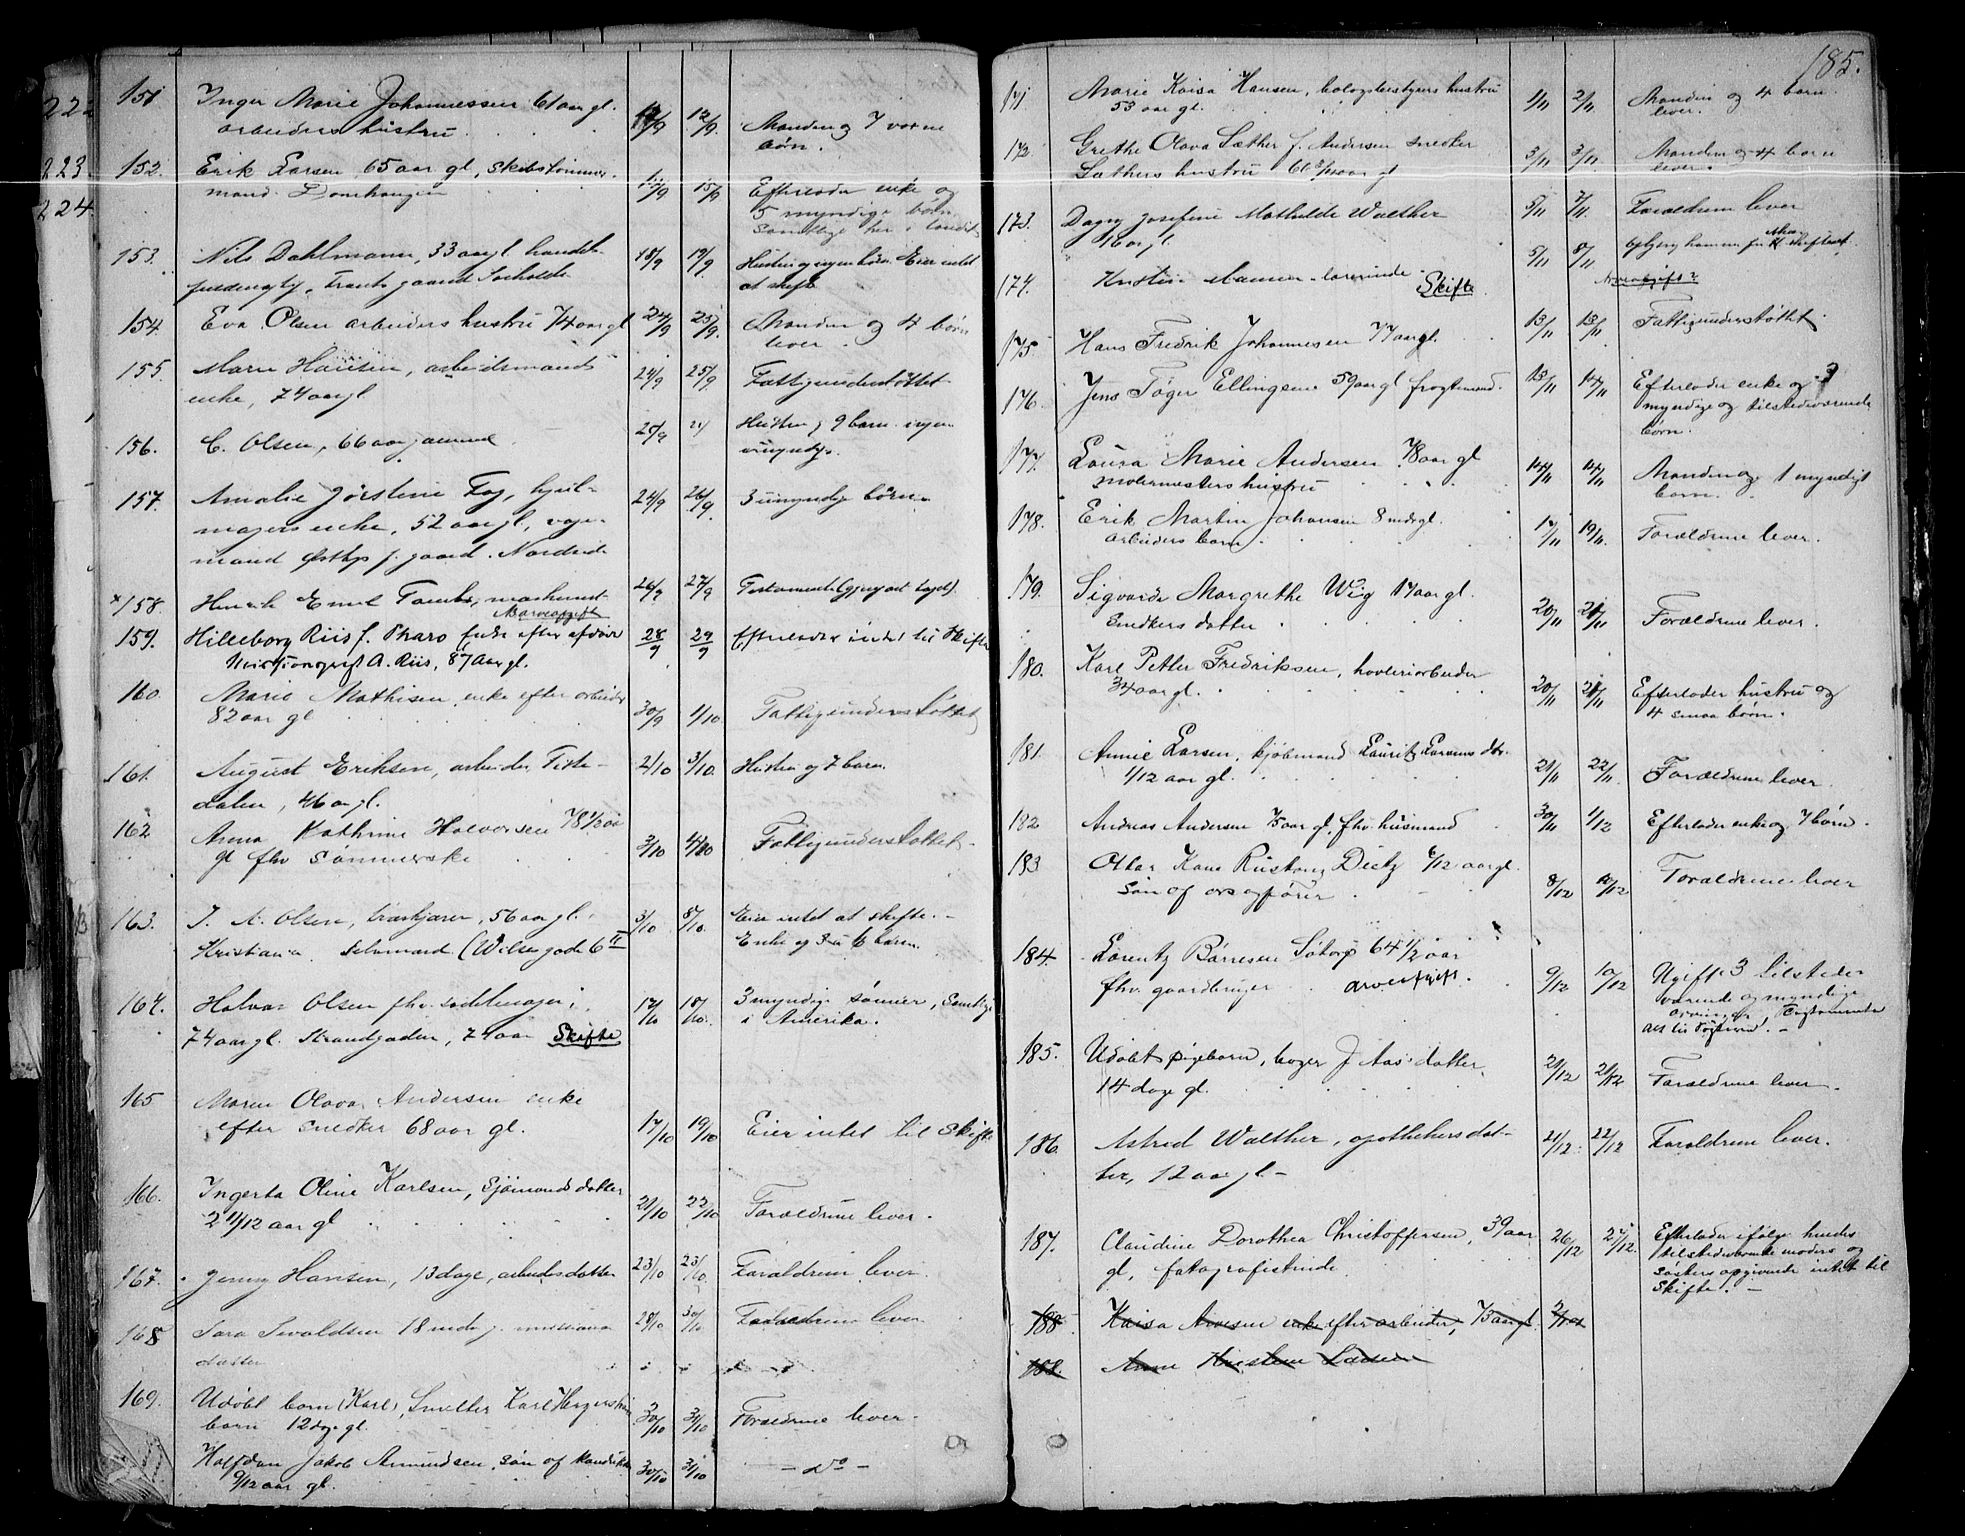 222
223
224
151 Inger Marie Johannessen 61 aar gl.
arbeiders hustru 12/9 12/9. Manden og 7 voxne
børn.
152. Erik Larsen 65 aar gl, Skibstømmer
mand 12/9 15/9 Efterlader enke og
5 myndige børn
samtlige her i landet
153. Nils Dahlmann, 33 aar gl handels
18/9 19/9 Hustru og ingen børn. Eier intet
at skifte
154. Eva Olsen arbeiders hustru 74 aar gl 24/9 25/9. Manden og 4 børn
lever.
155. Maren Hansen, arbeidsmands
enke, 74 aar gl. 24/9 25/9 Fattigunderstøttet
156. C. Olsen, 66 aar gammel 25/9 Hustru og 9 barn ingen
umyndige.
157. Amalie Jørstine Foj, hjul-
magers enke, 52 aar gl, 24/9 26/9. 3 umyndige børn
×158. Henrik Emil 26/9 27/9
Arveafgift
159. Hilleborg Riis f. Tharo Enke efter afdøde
A. Riis, 87 aar gl. 28/9 29/9 Efterlader intet til skifte
160. Marie Mathisen, enke efter arbeider
82 aar gl 30/9 1/10 Fattigunderstøttet
161. August Eriksen, arbeider Tiste-
dalen, 46 aar gl. 2/10 3/10. Hustru og 7 barn.
162 Anna Kathrine Halvorsen 78 1/2 aar
gl fhv Sømmerske 3/10 4/10 Fattigunderstøttet.
163. J. A. Olsen, træskjærer, 56 aar gl.
Kristiania 3/10 8/10. Eier intet at skifte. -
Enke og 3 børn.
164. Halvor Olsen fhv. sadelmager,
74 aar gl. Strandgaden, 74 aar Skifte 17/10 18/10. 3 myndige sønner, samtlige
i Amerika.
165 Maren Olava Andersen enke
efter snedker 68 aar gl. 17/10 19/10 Eier intet til Skifte
166. Ingerta Oline Karlsen, Sjømands datter
2 11/12 aar gl 21/10 22/10 Forældrene lever.
167. Jenny Hansen, 13 dage, arbeidersdatter 23/10 23/10. Forældrene lever.
168 Sara Sivaldsen 18 mdr g.
datter 28/10 30/10 Forældrene lever
169. Udøbt barn (Karl), Smelter Karl
barn 12 dage gl. 30/10 31/10 Forældrene lever.
Halfdan Jakob Amundsen, søn af
9/12 aar gl. 30/10 31/10 – Do –
185.
171. Marie Kaisa Hansen, bologsbestyrers hustru
53 aar gl. 1/11 2/11 Manden og 4 barn
lever.
172. Grethe Olava Sæther f. Andersen snedker
Sæthers hustru 3/11 3/11. Manden og 4 børn
lever
173. Dagny Josefine Mathilde Walther
16 aar gl 5/11 7/11 Forældrene lever
174. Kristine lærerinde Skifte. 5/11 8/11
Arveafgift?
175 Hans Fredrik Johannesen 77 aar gl. 13/11 13/11 Fattigunderstøttet.
176. Jens Føger Ellingsen 59 aar gl fragtemand. 13/11 14/11 Efterlader enke og 3
myndige og tilstedeværende
børn.
177. Laura Marie Andersen 78 aar gl
hustru 14/11 14/11 Manden og 1 myndigt
barn.
178. Erik Martin Johansen 8 mdr gl.
arbeiders barn. 17/11 19/11. Forældrene lever.
179. Sigvarda Margrethe Wiig 17 aar gl.
Snedkers datter 20/11 21/11 Forældrene lever.
180. Karl Petter Fredriksen, høvleriarbeider
34 aar gl. 20/11 21/11 Efterlader hustru og
4 smaa børn.
181. Annie Larsen, kjøbmand Lauritz Larsens dtr.
1/12 aar gl. 21/11 22/11. Forældrene lever.
182 Andreas Andersen 75 aar gl, fhv. husmand 30/11 1/12 Efterlader enke og 7 børn.
183 Ottar Kaus Dietz 6/12 aar gl.
Søn af 8/12 10/12 Forældrene lever
184. Lorentz Børresen Søtorp 64 1/2 aar
fhv. gaardbruger arveafgift. 9/12 10/12 Ugift. 3 tilstede
værende og myndige
185. Udøbt pigebarn, bager J. Aas datter,
14 dage gl. 21/12 21/12 Forældrene lever.
186. Astrid Walther, apothekers dat-
ter, 12 aar gl - 21/12. 22/12 Forældrene lever.
187. Claudine Dorothea Christoffersen, 39 aar
gl, fotografistinde. 26/12 27/12. Efterlader ifølge hendes
tilstedeværende moders og
søsters opgivende intet til
Skifte. -
188 Kaisa enke efter arbeider, 73 aar gl. 2/1
182. Anne Kirstine Larsen